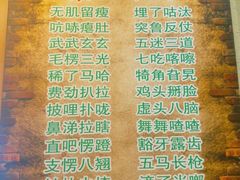 无肌留瘦 埋了咕汰
吭哧瘪肚 突鲁反仗
武武玄玄 五迷三道
毛楞三光 七吃喀嚓
稀了马哈 犄角旮旯
费劲扒拉 鸡头掰脸
披哩扑咙 虚头八脑
鼻涕拉瞎 舞舞喳喳
直吧愣蹬 豁牙露齿
支愣八翘 五马长枪